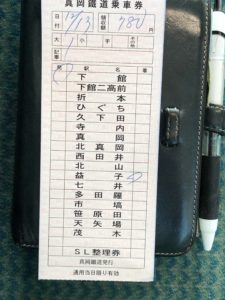 真岡鐵道乗車券
日付 12/13 領収額 780円
大人 1 小児 その他
発 駅名 着
下館
下館二高前
折本
ひぐち
久下田
寺内
真岡
北真岡
西田井
北山
益子
七井
多田羅
市塙
笹原田
天矢場
茂木
SL整理券
真岡鐵道発行
通用当日限り有効